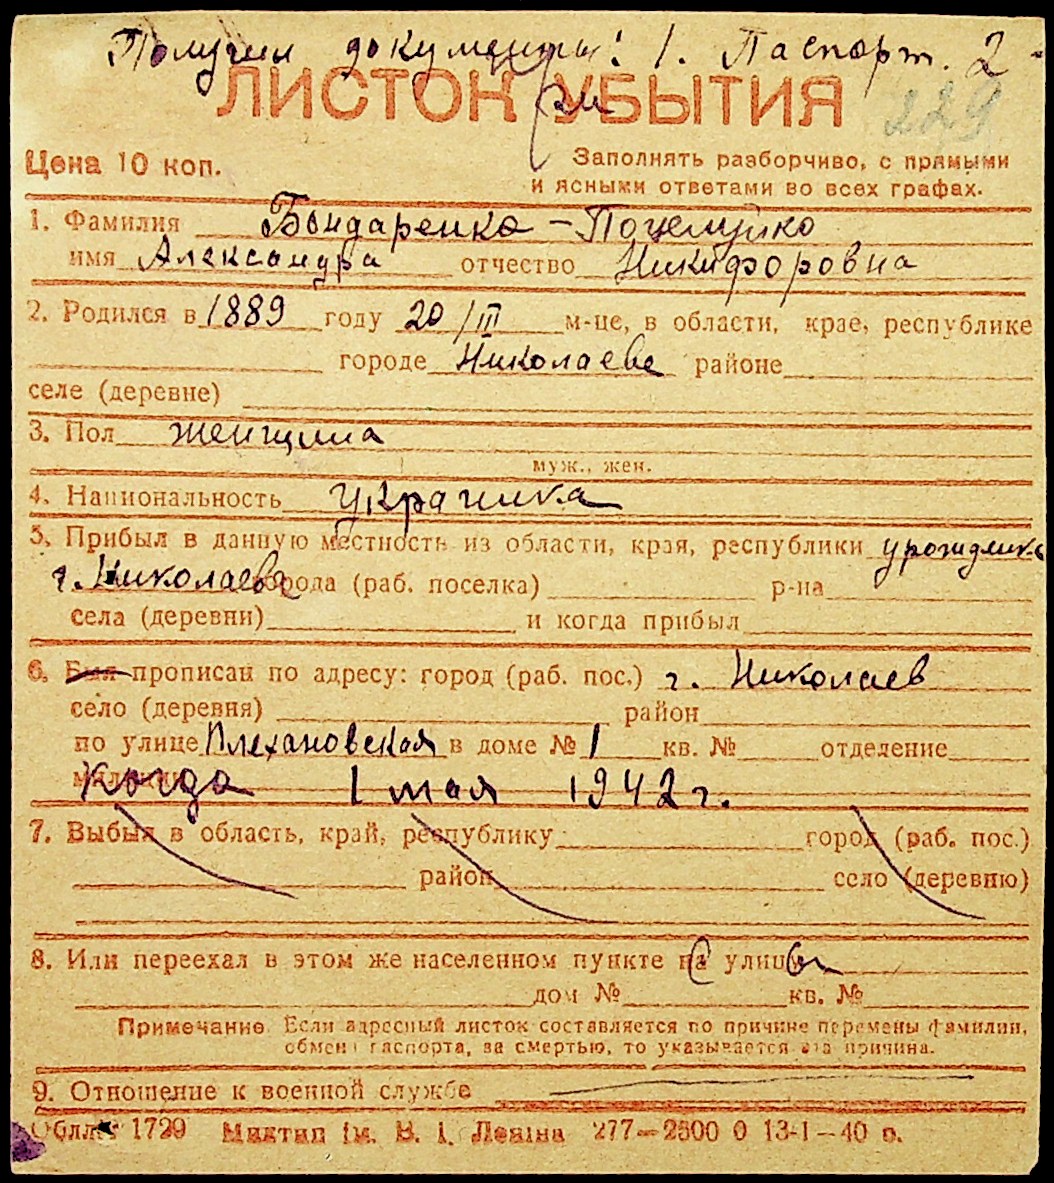 Получил документы: 1. Паспорт. 2-
ЛИСТОК УБЫТИЯ
229
Цена 10 коп.
Заполнять разборчиво, с прямыми
и ясными ответами во всех графах.
1. Фамилия Бондаренко-Поцелуйко
имя Александра отчество Никифоровна
2. Родился в 1889 году 20/III м-це, в области, крае, республике
городе Николаеве районе
селе (деревне)
3. Пол женщина
муж., жен.
4. Национальность украинка
5. Прибыл в данную местность из области, края, республики урожденка
г. Николаева города (раб. поселка) р-на
села (деревни) и когда прибыл
6. Был прописан по адресу: город (раб. пос.) г. Николаев
село (деревня) район
по улице Плехановская в доме № 1 кв. № отделение
милиции Когда 1 мая 1942 г.
7. Выбыл в область, край, республику город (раб. пос.)
район село (деревню)
8. Или переехал в этом же населенном пункте на улицу
дом № кв. №
Примечание Если адресный листок составляется по причине перемены фамилии,
обмена паспорта, за смертью, то указывается эта причина.
9. Отношение к военной службе
Обллит 1729 Миктип ім. В. І. Леніна 277—2500 0 13-І-40 р.